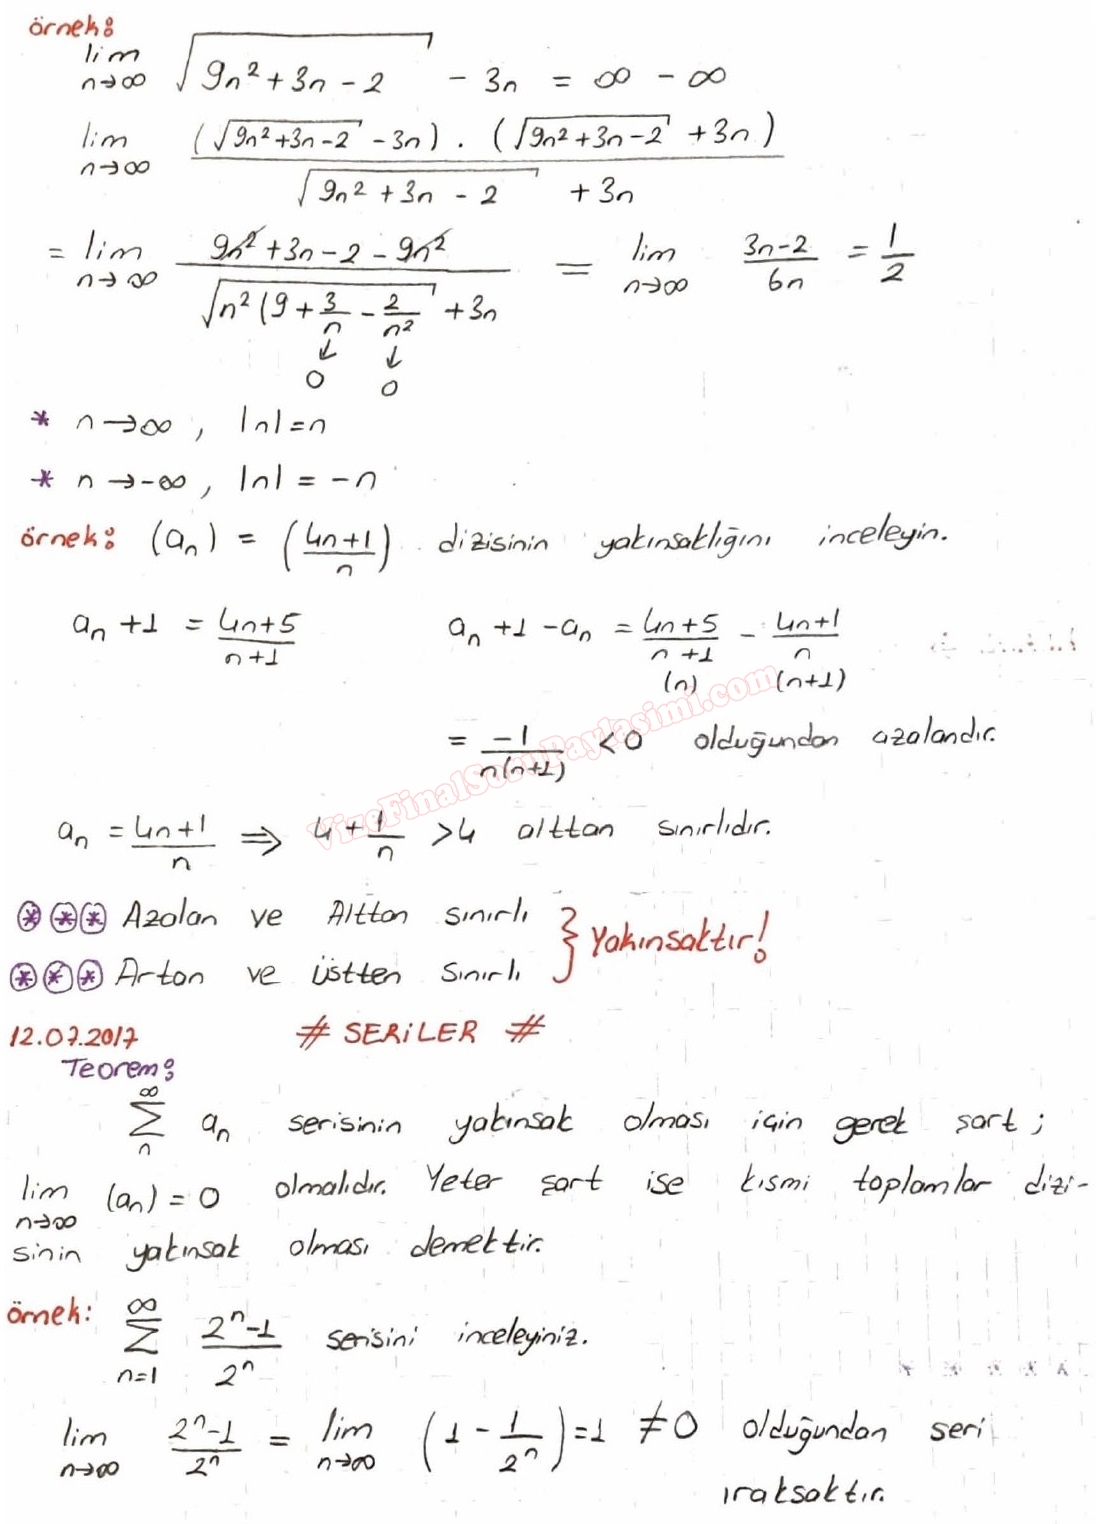 örnek:
lim n→∞ √(9n²+3n-2) - 3n = ∞ - ∞
lim n→∞ (√(9n²+3n-2) - 3n) . (√(9n²+3n-2) + 3n) / √(9n²+3n-2) + 3n
= lim n→∞ (9n²+3n-2-9n²) / (√(n²(9+3/n-2/n²) + 3n) = lim n→∞ (3n-2)/6n = 1/2
↓ ↓
0 0
* n→∞, |n|=n
* n→-∞, |n|=-n
örnek: (aₙ) = ((4n+1)/n) dizisinin yakınsaklığını inceleyin.
aₙ+1 = (4n+5)/(n+1) aₙ+1-aₙ = (4n+5)/(n+1) - (4n+1)/n
(n) (n+1)
= -1/(n(n+1)) <0 olduğundan azalandır.
aₙ = (4n+1)/n ⇒ 4+1/n >4 alttan sınırlıdır.
*** Azalan ve Alttan sınırlı
*** Artan ve üstten sınırlı } Yakınsaktır!
12.07.2017 # SERİLER #
Teorem:
∞ Σ n aₙ serisinin yakınsak olması için gerek şart;
lim n→∞ (aₙ)=0 olmalıdır. Yeter şart ise kısmi toplamlar dizi-
sinin yakınsak olması demektir.
örnek: ∞ Σ n=1 (2ⁿ-1)/2ⁿ serisini inceleyiniz.
lim n→∞ (2ⁿ-1)/2ⁿ = lim n→∞ (1-1/2ⁿ)=1 ≠0 olduğundan seri
ıraksaktır.
VizeFinalSoruPaylasimi.com